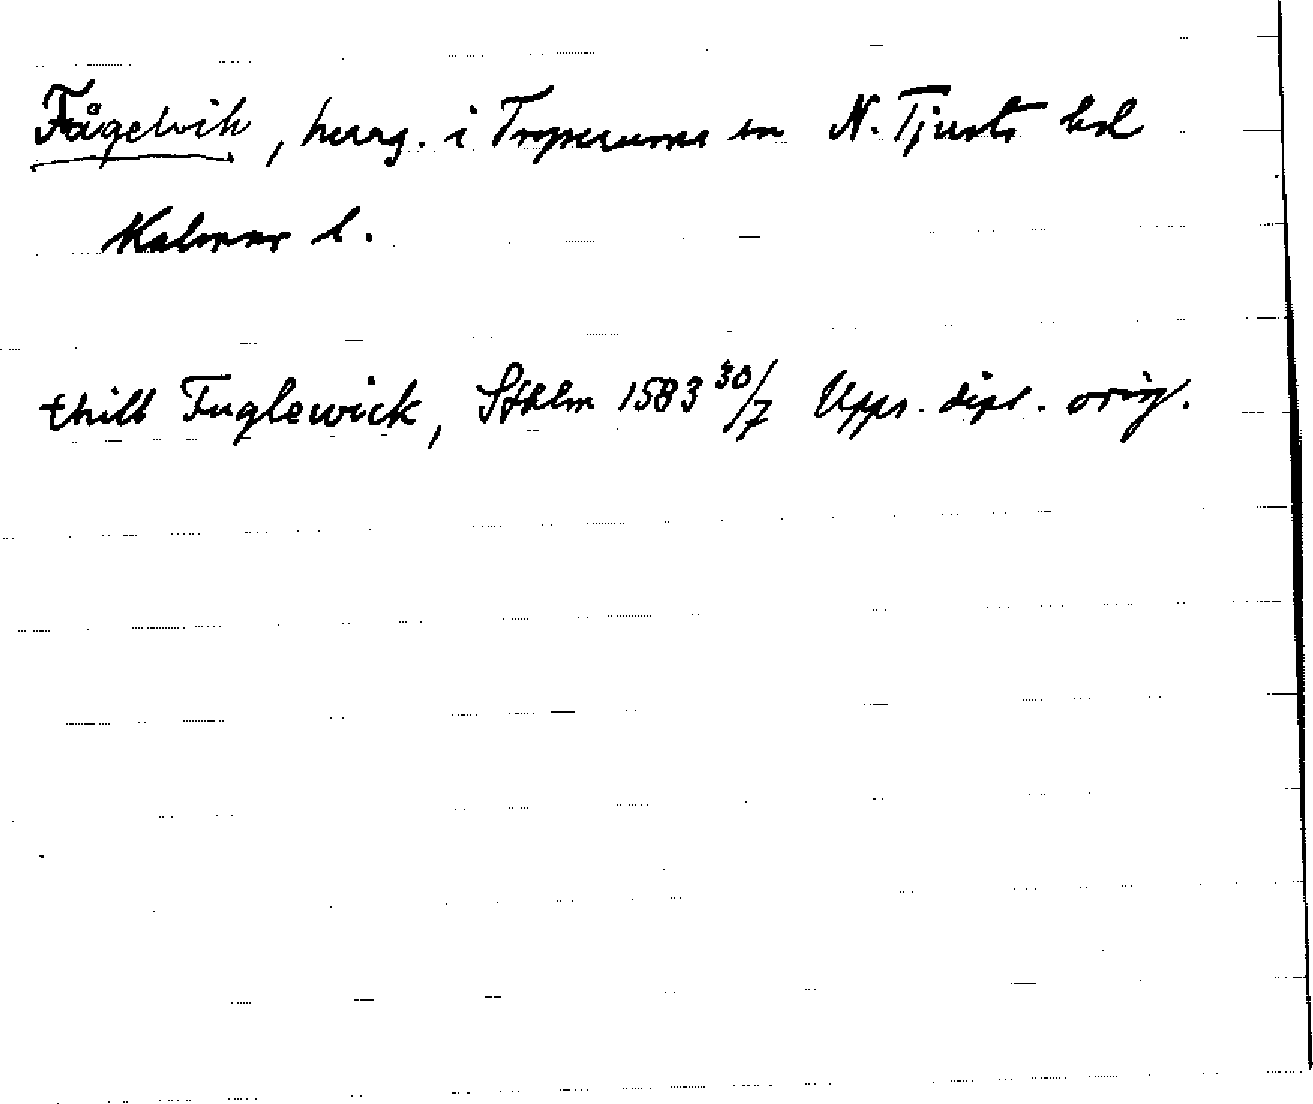 Fågelvik, herrg. i Tryserums sn N. Tjusts hd
Kalmar l.
thill Fuglewick, Sthlm 1583 30/7 Upps. dipl. orig.